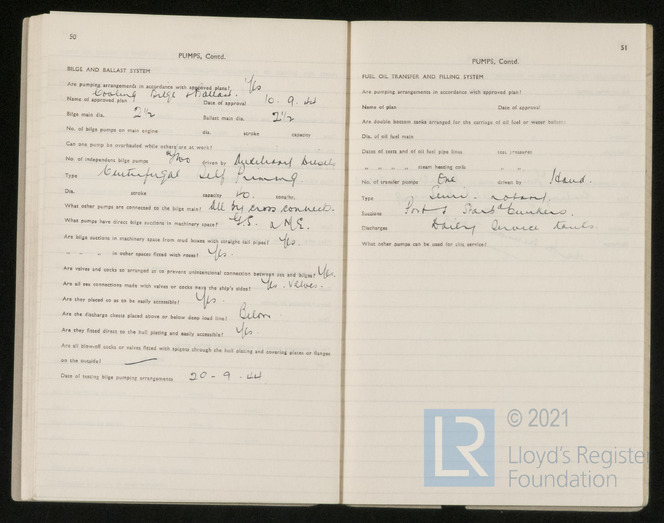 50
PUMPS, Contd.
BILGE AND BALLAST SYSTEM
Are pumping arrangements in accordance with approved plans? Yes
Cooling Bilge & Ballast.
Name of approved plan Date of approval 10.9.44
Bilge main dia. 2½ Ballast main dia. 2½
No. of bilge pumps on main engine dia. stroke capacity
Can one pump be overhauled while others are at work?
No. of independent bilge pumps Two driven by Auxiliary Diesels
Type Centrifugal Self Priming
Dia. stroke capacity 40. tons/hr.
What other pumps are connected to the bilge main? All by cross connect.
What pumps have direct bilge suctions in machinery space? G.S. & M.E.
Are bilge suctions in machinery space from mud boxes with straight tail pipes? Yes.
" " " in other spaces fitted with roses? Yes.
Are valves and cocks so arranged as to prevent unintentional connection between sea and bilges? Yes.
Are all sea connections made with valves or cocks next the ship's sides? Yes. Valves.
Are they placed so as to be easily accessible? Yes.
Are the discharge chests placed above or below deep load line? Below
Are they fitted direct to the hull plating and easily accessible? Yes.
Are all blow-off cocks or valves fitted with spigots through the hull plating and covering plates or flanges
on the outside?
Date of testing bilge pumping arrangements 20-9.44
51
PUMPS, Contd.
FUEL OIL TRANSFER AND FILLING SYSTEM
Are pumping arrangements in accordance with approved plan?
Name of plan Date of approval
Are double bottom tanks arranged for the carriage of oil fuel or water ballast?
Dia. of oil fuel main
Dates of tests and of oil fuel pipe lines test pressures
" " " " steam heating coils " "
No. of transfer pumps One driven by Hand.
Type Semi. rotary
Suctions Port & Starbd Bunkers.
Discharges Daily Service tanks.
What other pumps can be used for this service?
© 2021
LR
Lloyd's Register
Foundation